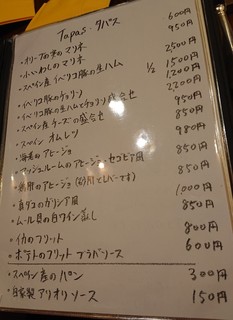 Tapas・タパス
・オリーブの実のマリネ 600円
・小いわしのマリネ 950円
・スペイン産イベリコ豚の生ハム 2500円
1/2 1500円
・イベリコ豚のチョリソ 1200円
・イベリコ豚の生ハムとチョリソ盛合せ 2200円
・スペイン産チーズの盛合せ 950円
・スペインオムレツ 850円
・海老のアヒージョ 980円
・マッシュルームのアヒージョ・セゴビア風 850円
のアヒージョ 850円
・真ダコのガリシア風 1000円
・ムール貝の白ワイン蒸し 850円
・イカのフリット 800円
・ポテトのフリット ブラバソース 600円
・スペイン産のパン 300円
・自家製アリオリソース 150円